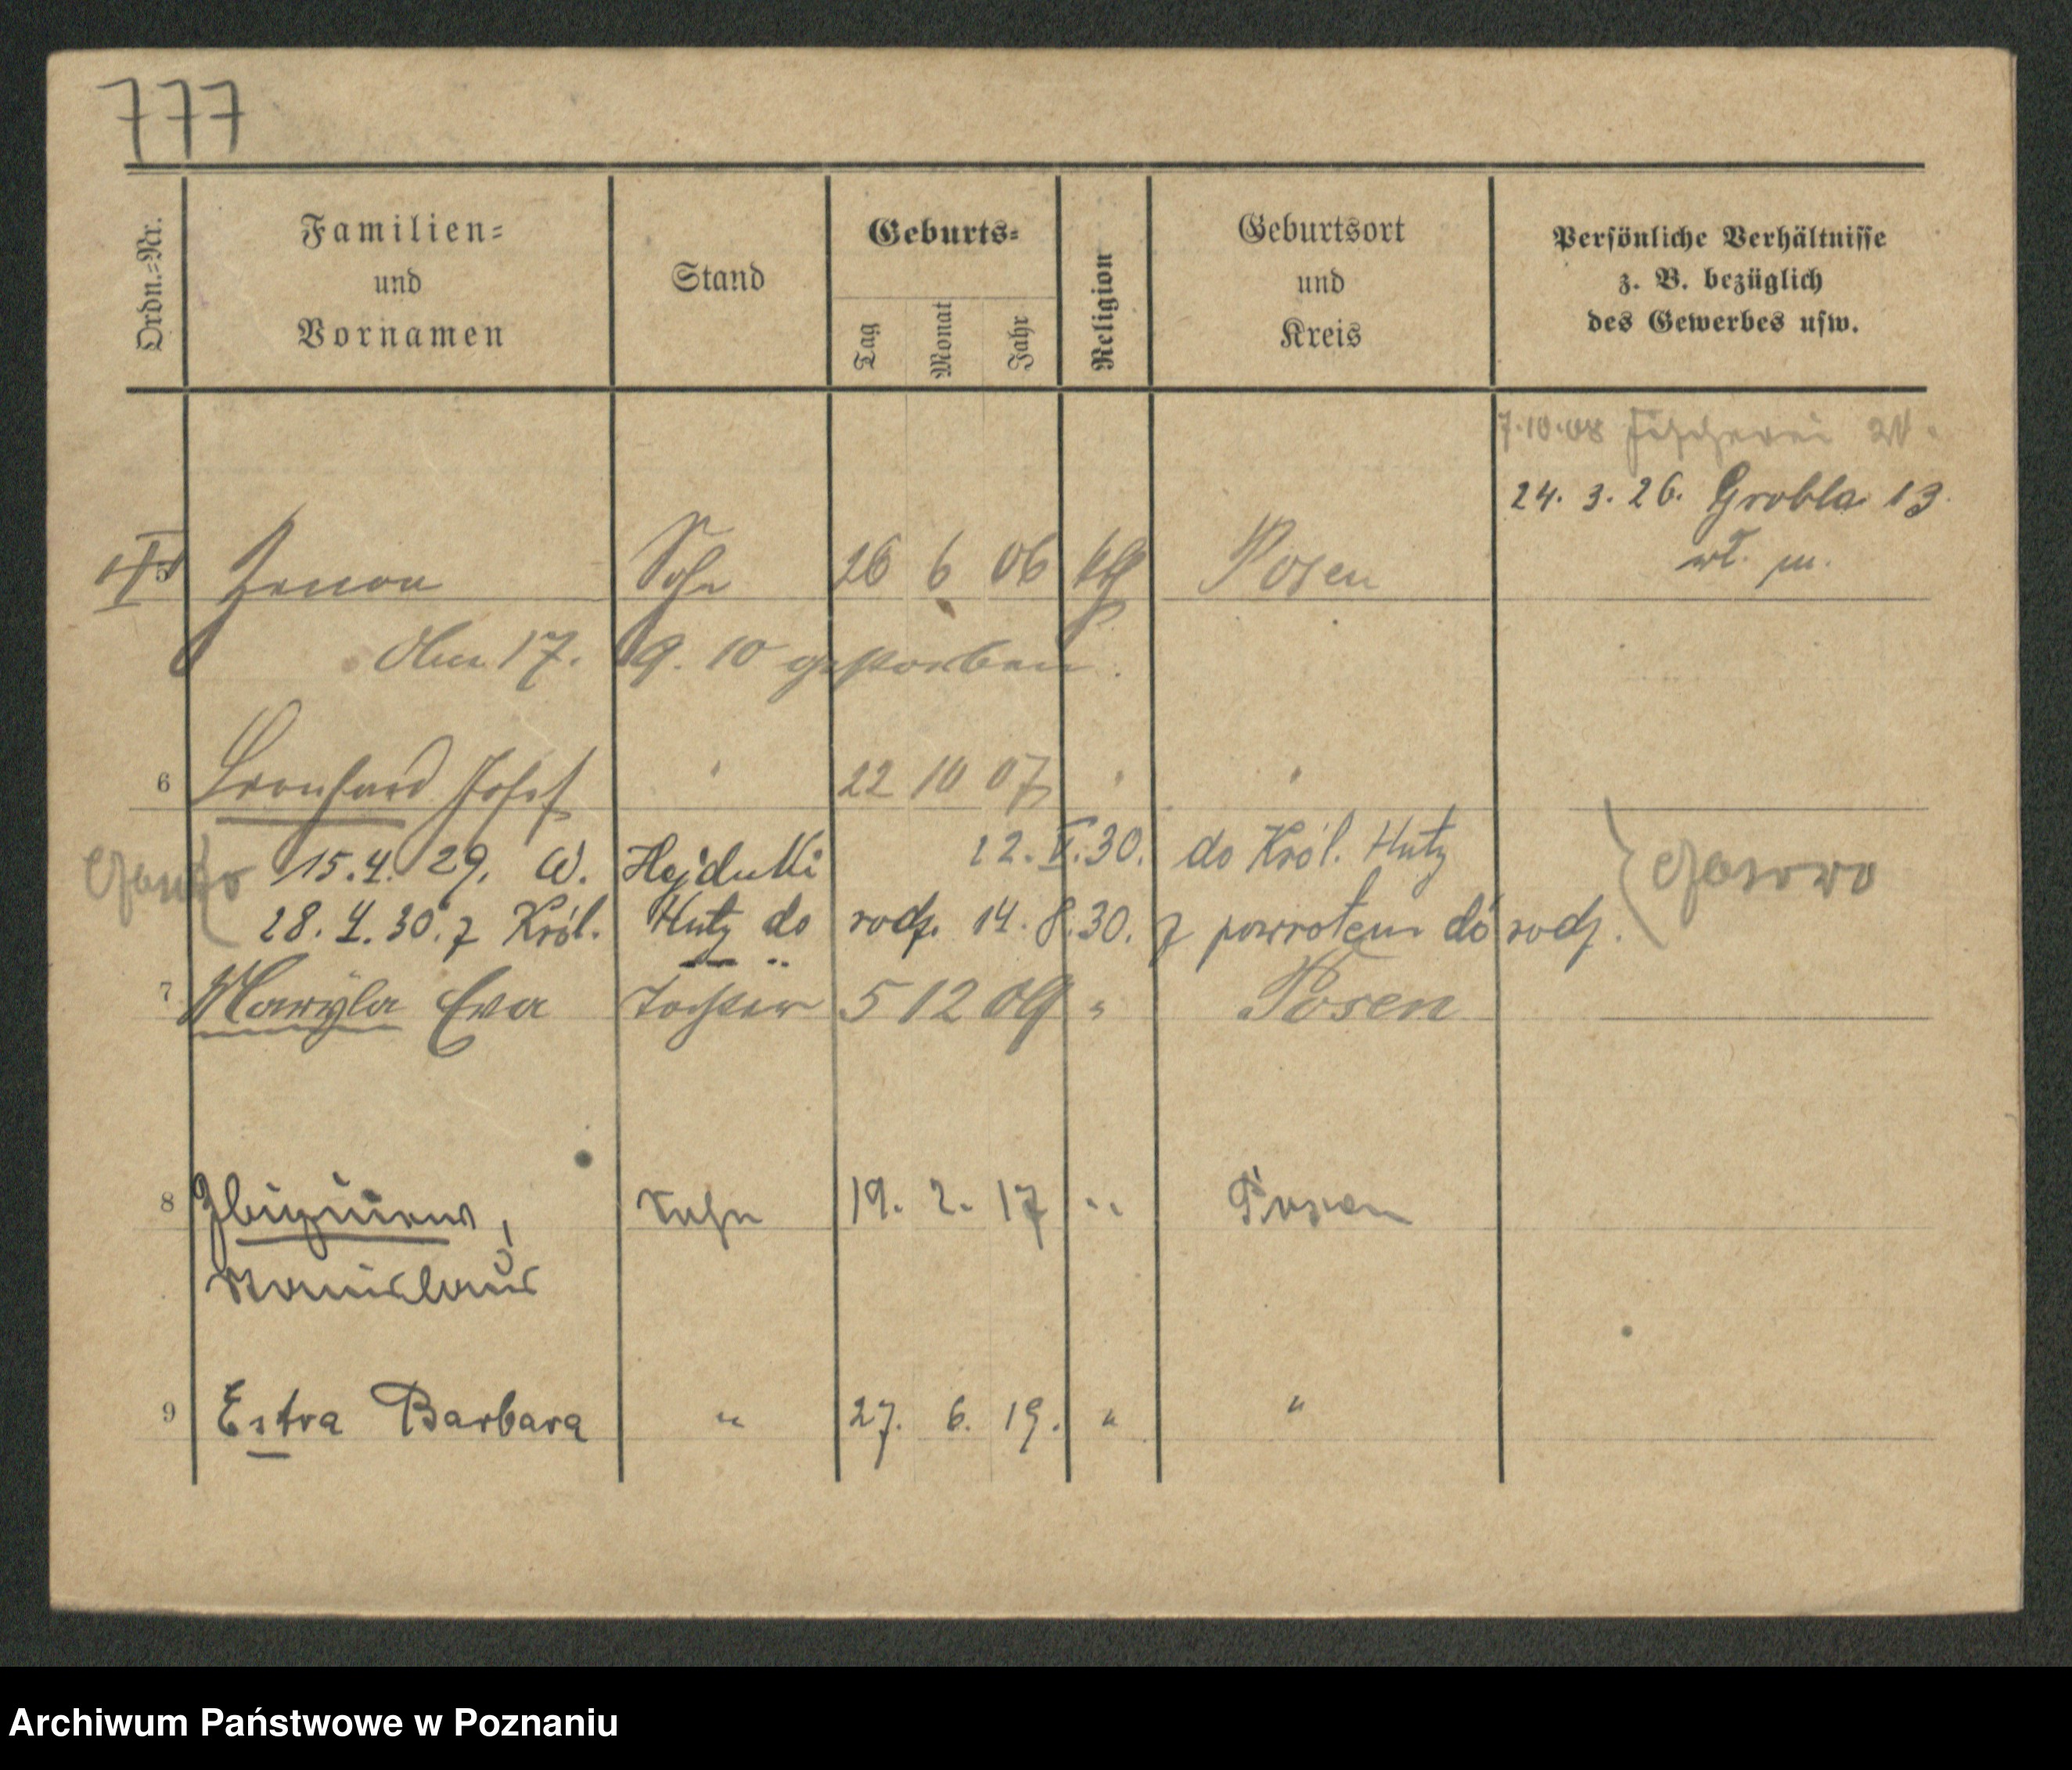 777
Ordn.-Nr.
Familien-
und
Vornamen
Stand
Geburts-
Tag
Monat
Jahr
Religion
Geburtsort
und
Kreis
Persönliche Verhältnisse
z. B. bezüglich
des Gewerbes usw.
7.10.08 Fischerei
24. 3. 26. Grobla 13
wł. m.
5 Zenon Sohn 26 6 06 kth Posen
Am 17. 9. 10 gestorben.
6 Leonhard Josef " 22 10 07 " "
15.4.29. W. Hajduki 22.V.30. do Król. Huty
28.4.30. z Król. Huty do rodz. 14.8.30. z powrotem do rodz.
7 Maryla Eva Tochter 5 12 09 " Posen
8 Zbigniew, Sohn 19. 2. 17 " Posen
Stanislaus
9 Estra Barbara " 27. 6. 19. " "
Archiwum Państwowe w Poznaniu